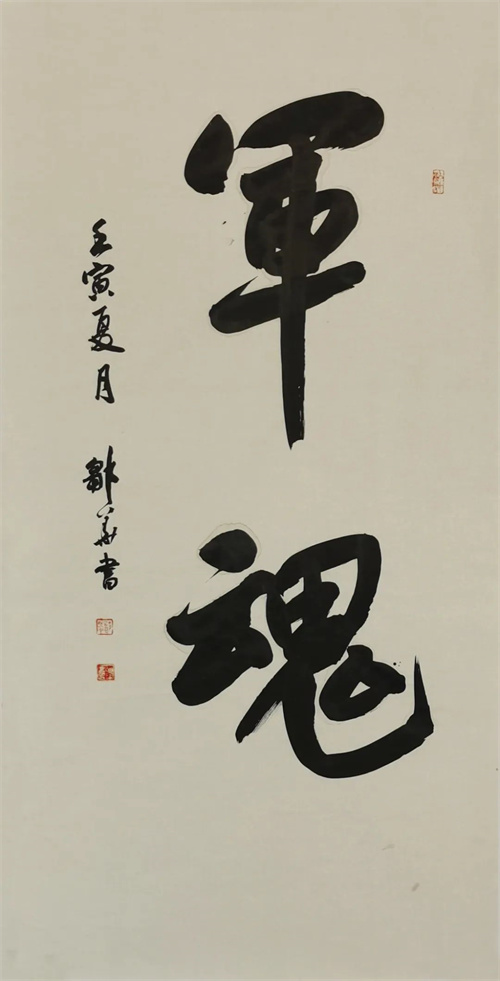 軍魂
壬寅夏月 鄒華書